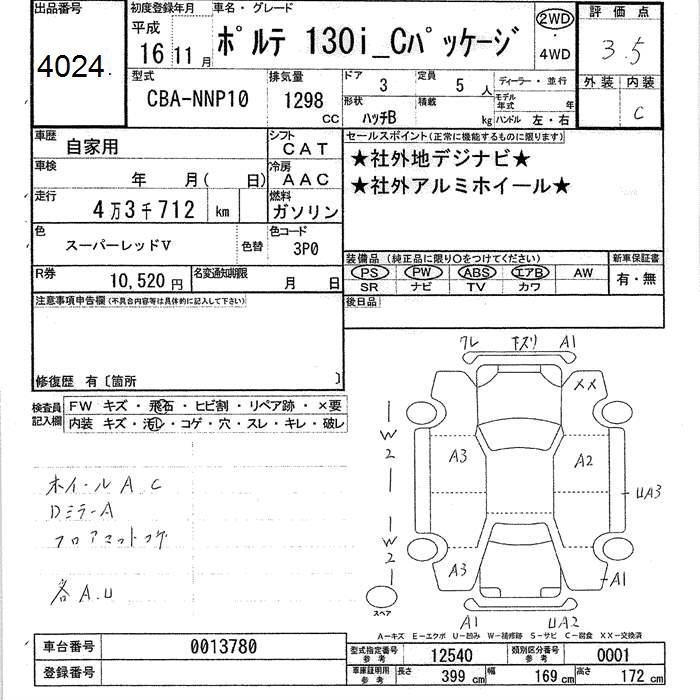 出品番号
4024.
初度登録年月
平成
16 11 月
車名・グレード
ポルテ 130i_Cパッケージ
2WD
・
4WD
評価点
3.5
外装 内装
C
型式
CBA-NNP10
排気量
1298
CC
ドア
3
定員
5 人
形状
ハッチB
積載
kg
ディーラー・並行
モデル年式 年
ハンドル 左・右
車歴
自家用
シフト
CAT
車検
年 月( 日)
冷房
AAC
走行
4万3千712 km
燃料
ガソリン
色
スーパーレッドV
色替
色コード
3P0
R券
10,520 円
名変通知期限
月 日
セールスポイント(正常に機能するものに限ります)
★社外地デジナビ★
★社外アルミホイール★
装備品(純正品に限り○をつけてください)
PS PW ABS エアB AW
SR ナビ TV カワ
新車保証書
有・無
後日品
注意事項申告欄(不具合内容等は具体的に記入して下さい)
修復歴 有〔箇所 〕
検査員記入欄
FW キズ・飛石・ヒビ割・リペア跡・×要
内装 キズ・汚レ・コゲ・穴・スレ・キレ・破レ
ホイールA C
Dミラ-A
フロアマットコゲ
各A.U
ワレ キズリ A1
XX
W2
A3
A2
UA3
W2
A3
A1
スペア
A1
UA2
A-キズ E-エクボ U-凹み W-補修跡 S-サビ C-腐食 XX-交換済
車台番号
0013780
登録番号
型式指定番号 参考
12540
類別区分番号 参考
0001
車庫証明用 参考
長さ 399 cm
幅 169 cm
高さ 172 cm